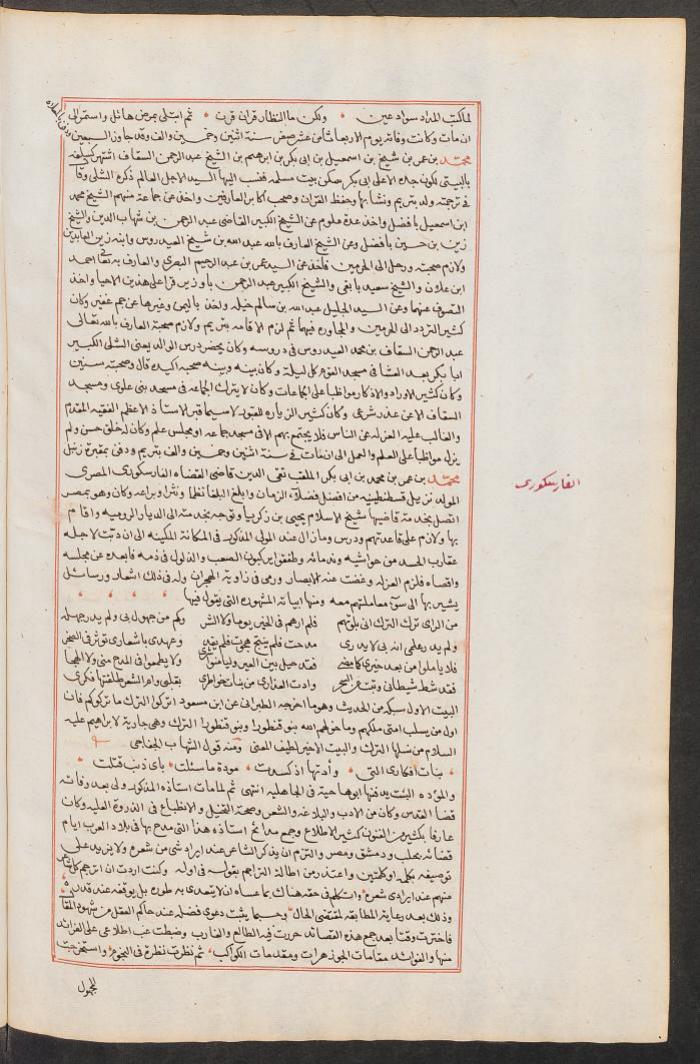 لما كتب المداد سواد عين • ولكن ما النظار قران قرت • ثم ابتلى بمرض هائل واستمر الى
ان مات وكانت وفاته يوم الاربعا ثامن عشر صفر سنة اثنين وخمسين والف وقد جاوز السبعين
محمد بن عمر بن شيخ بن اسمعيل بن ابى بكر بن ابرهيم بن الشيخ عبد الرحمن السقاف اشتهر كسلفه
بالبيتى لكون جده الاعلى ابى بكر سكن بيت مسلمه فنسب اليها السيد الاجل العالم ذكره الشلى وقال
فى ترجمته ولد بتريم ونشا بها وحفظ القران وصحب اكابر العارفين واخذ عن جماعة منهم الشيخ محمد
ابن اسمعيل بافضل واخذ عدة علوم عن الشيخ الكبير القاضى عبد الرحمن بن شهاب الدين والشيخ
زين بن حسين بافضل وعن الشيخ العارف بالله عبد الله بن شيخ العيدروس وابنه زين العابدين
ولازم صحبته ورحل الى الحرمين فاخذ عن السيد عمر بن عبد الرحيم البصرى والعارف بالله تعالى احمد
ابن علان والشيخ سعيد بابقى والشيخ الكبير عبد الرحمن باوزير قرا على هذين الاحيا واخذ
التصوف عنهما وعن السيد الجليل عبد الله بن سالم خيله واخذ باليمن وغيرها عن جم غفير وكان
كثير التردد الى الحرمين والمجاوره فيهما ثم لزم الاقامه بتريم ولازم صحبة العارف بالله تعالى
عبد الرحمن السقاف بن محمد العيدروس فى دروسه وكان يحضر درس الوالد يعنى الشلى الكبير
ابا بكر بعد العشا فى مسجد القوم كل ليلة وكان بينه وبينه صحبه اكيده قال وصحبته سنين
وكان كثير الاوراد والاذكار مواظبا على الجماعات وكان لا يترك الجماعه فى مسجد بنى علوى ومسجد
السقاف الا عن عذر شرعى وكان كثير الزياره للقبور لا سيما قبر الاستاذ الاعظم الفقيه المقدم
والغالب عليه العزله عن الناس فلا يجتمع بهم الا فى مسجد جماعه او مجلس علم وكان له خلق حسن ولم
يزل مواظبا على العلم والعمل الى ان مات فى سنة اثنين وخمسين والف بتريم ودفن بمقبرة زنبل
محمد بن عمر بن محمد بن ابى بكر الملقب تقى الدين قاضى القضاه الفارسكورى المصرى
المولد نزيل قسطنطينيه من افضل فضلاء الزمان وابلغ البلغا نظما ونثرا وبراعه وكان وهو بمصر
اتصل بخدمة قاضيها شيخ الاسلام يحيى بن زكريا وتوجه بخدمته الى الديار الروميه واقام
بها ولازم على قاعدتهم ودرس وما زال عند المولى المذكور فى المكانة المكينه الى ان دبت لاجله
عقارب الحسد من حواشيه وندمائه وطفقوا يركبون الصعب والذلول فى ذمه فابعده عن مجلسه
واقصاه فلزم العزله وغضت عنه الابصار ورمى فى زاوية الهجران وله فى ذلك اشعار ورسائل
يشير بها الى سوء معاملتهم معه ومنها ابياته المشهوره التى يقول فيها
من الراى ترك الترك انى بلوتهم فلم ارهم فى الخير يوما ولا الشر وكم من جهول بى ولم يدر جهله
ولم يدر علمى انه بى لا يدرى مدحت فلم ينتج هجوت فلم يفد وعهدى باشعارى توثر فى الصخر
فلا ياملوا من بعد خيرى كما مضى فقد حيل بين العير ولياسوا ولا يطمعوا فى المدح منى ولا الهجا
فقد شط شيطانى وتبت عن السحر وادت العذارى من بنات خواطرى بقلبى وام الشعر طلقها فكرى
البيت الاول سبكه من الحديث وهو ما اخرجه الطبرانى عن ابن مسعود اتركوا الترك ما تركوكم فان
اول من يسلب امتى ملكهم وما خولهم الله بنو قنطورا وبنو قنطورا الترك وهى جارية لابراهيم عليه
السلام من نسلها الترك والبيت الاخير لطيف المعنى ومنه قول الشهاب الخفاجى
بنات افكارى التى • وأدتها اذ كسدت • مودة ما سئلت • باى ذنب قتلت
والموءده البنت يدفنها ابوها حية فى الجاهليه انتهى ثم لما مات استاذه المذكور ولى بعد وفاته
قضا القدس وكان من الادب والبلاغه والشعر وصحة التخيل والانطباع فى الذروة العليه وكان
عارفا بكثير من الفنون كثير الاطلاع وجمع مدائح استاذه هذا التى مدح بها فى بلاد العرب ايام
قضائه بحلب ودمشق ومصر والتزم ان يذكر الشاعر عند ايراد شى من شعره ولا يزيد على
توصيفه بكلمه او كلمتين واعتذر من اطالة التراجم بقوله فى اوله وكنت اردت ان اترجم كل شاعر
منهم عند ايرادى شعره واتكلم فى حقه هناك بما عساه ان لا يتعدى به طوره بل يوقفه عند قدره
وذلك بعد رعاية المطابقه لمقتضى الحال وحسبما يثبت دعوى فضله عند حاكم العقل من شهود المقال
فاخترت وقتا بعد جمع هذه القصائد حررت فيه الطالع والغارب وضبطت غب اطلاعى على الفرائد
منها والفوائد مقامات الجوزهرات ومقدمات الكواكب ثم نظرت نظرة فى النجوم واستخرجت
الفارسكورى